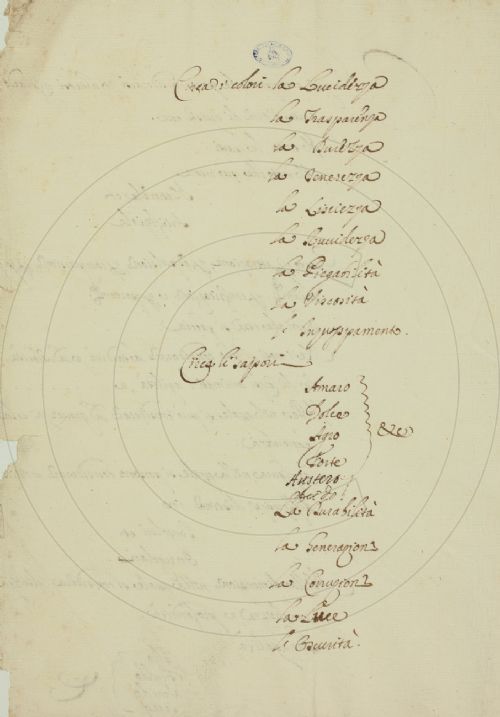 Circa i colori la Lucidezza
la Trasparenza
la
la
la Lisciezza
la Ruvidezza
la Piegabilità
la Viscosità
l' Inzuppamento.
Circa li sapori
Amaro
Dolce
Agro &c
Forte
Austero
La Durabilità
la Generazione
la Corruzione
la Luce
l' Oscurità.